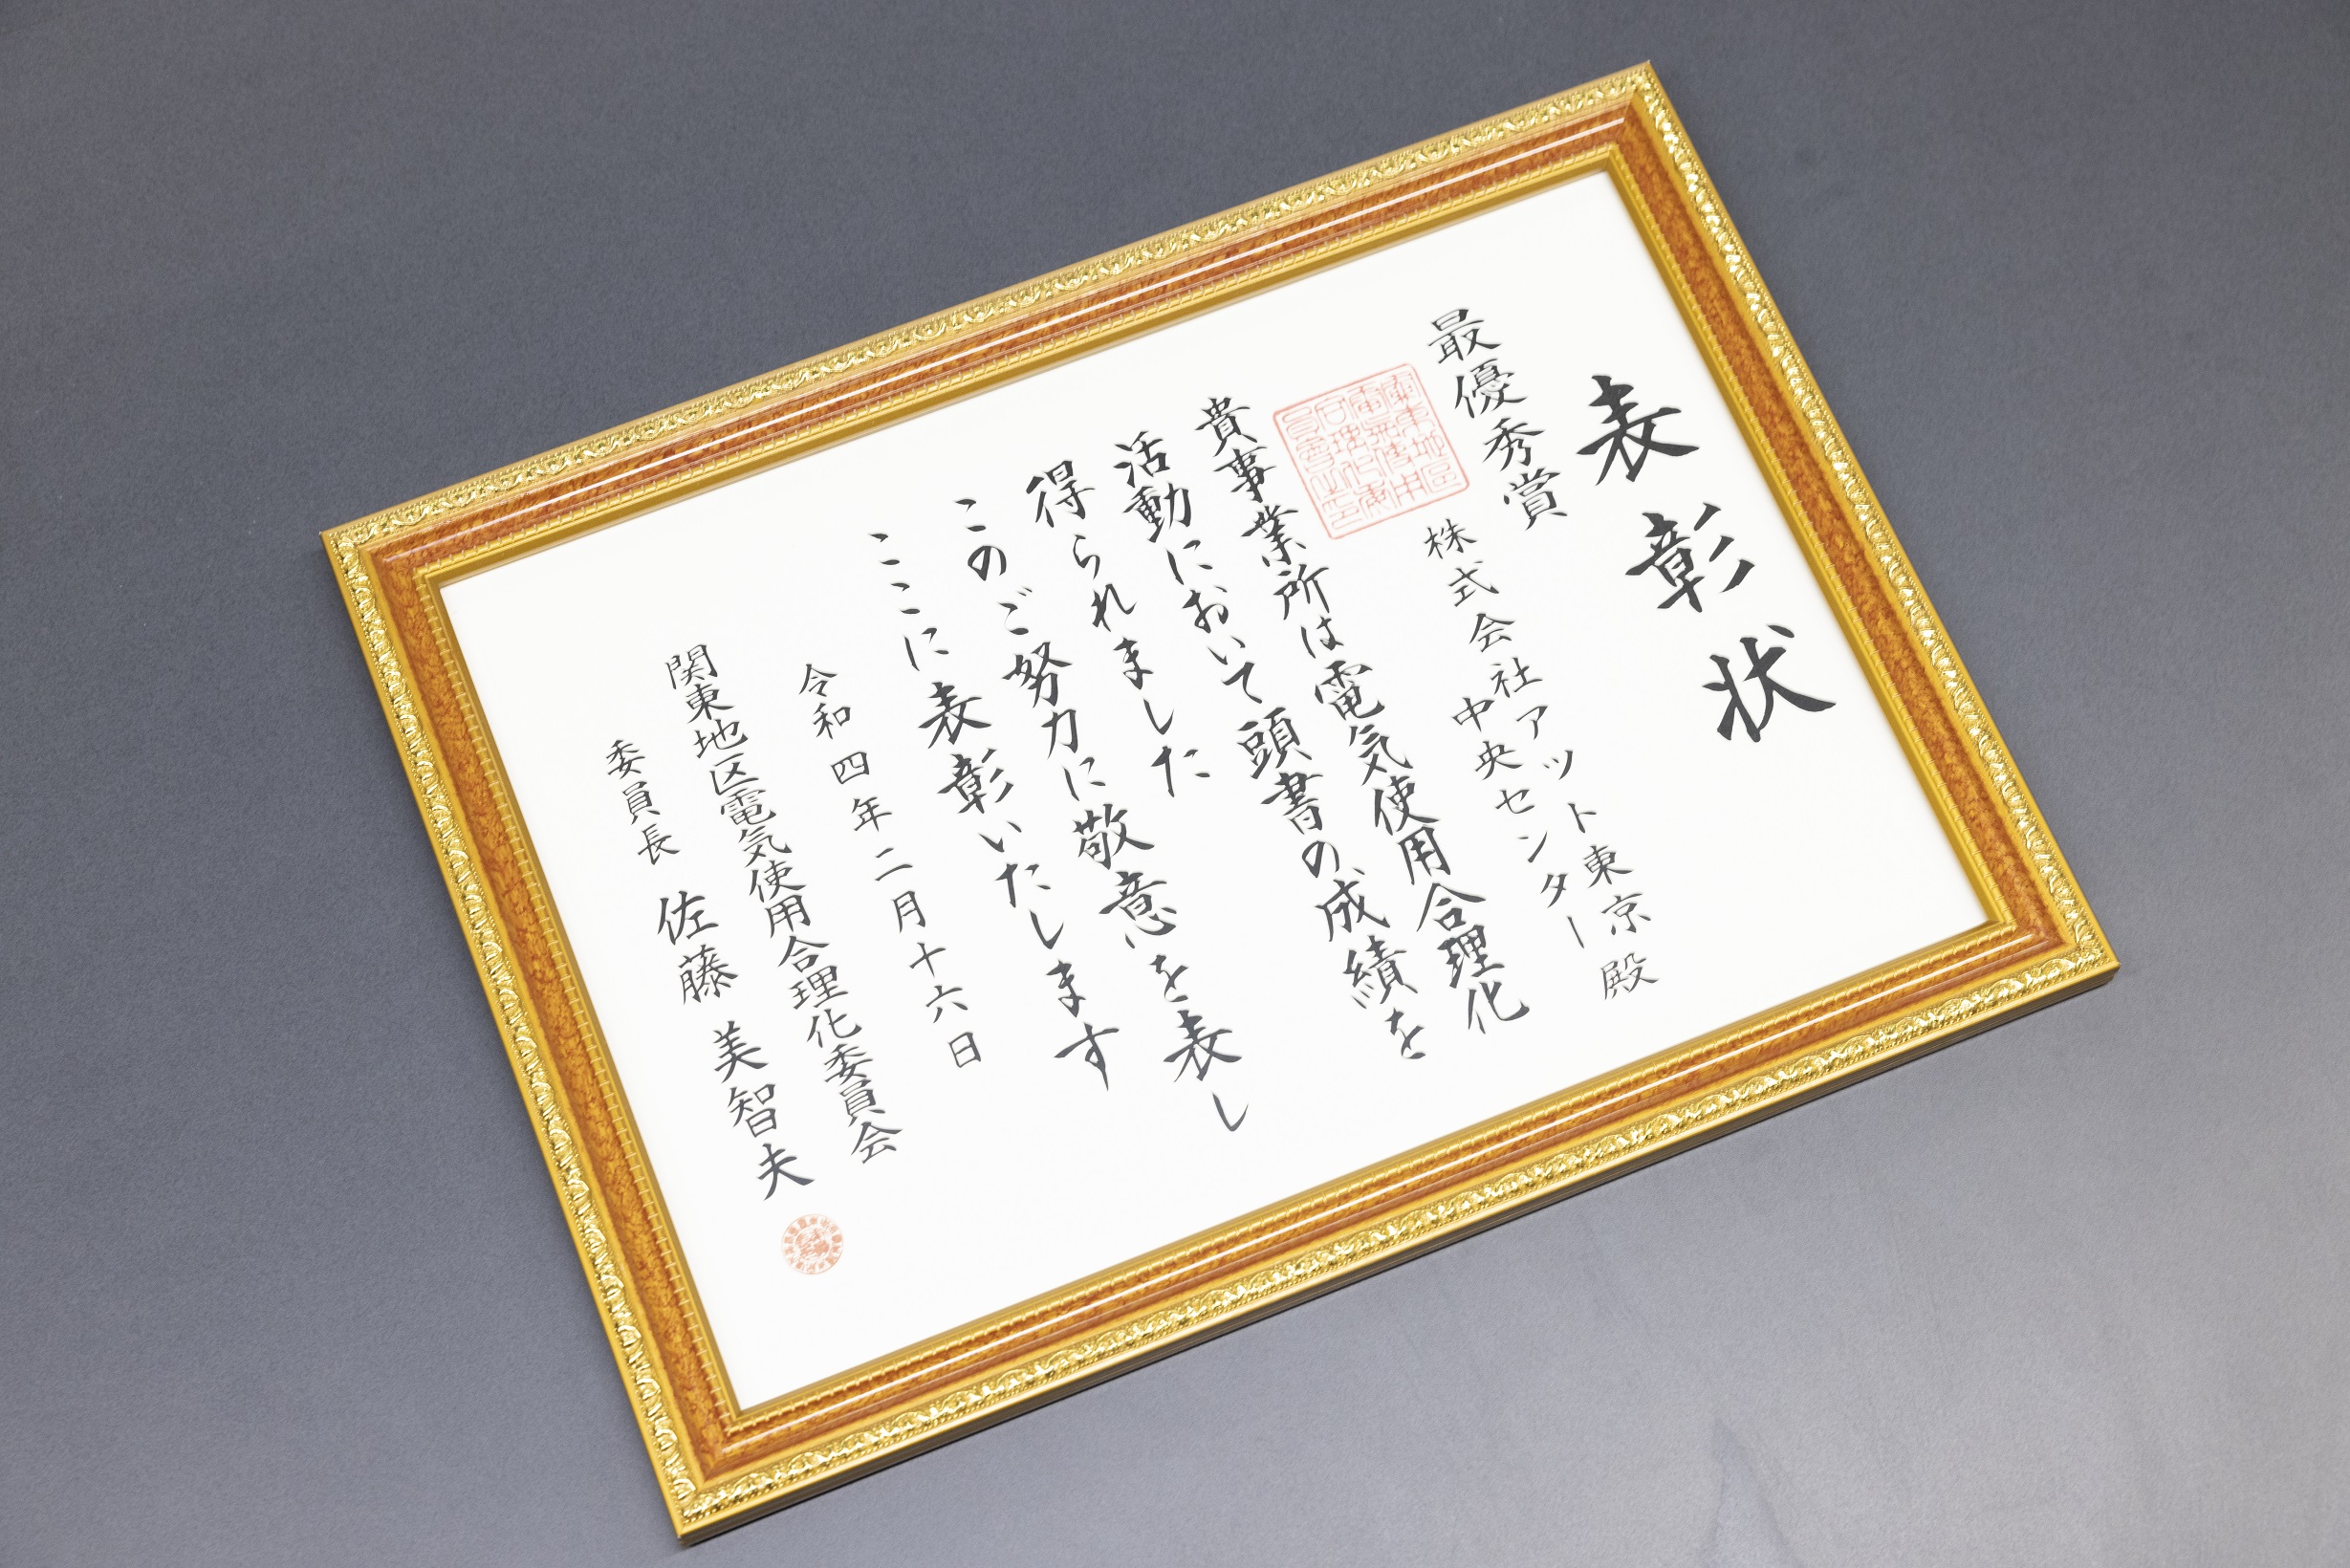 表彰状
最優秀賞
株式会社アット東京殿
中央センター
貴事業所は電気使用合理化
活動において頭書の成績を
得られました
このご努力に敬意を表し
ここに表彰いたします
令和四年二月十六日
関東地区電気使用合理化委員会
委員長 佐藤 美智夫